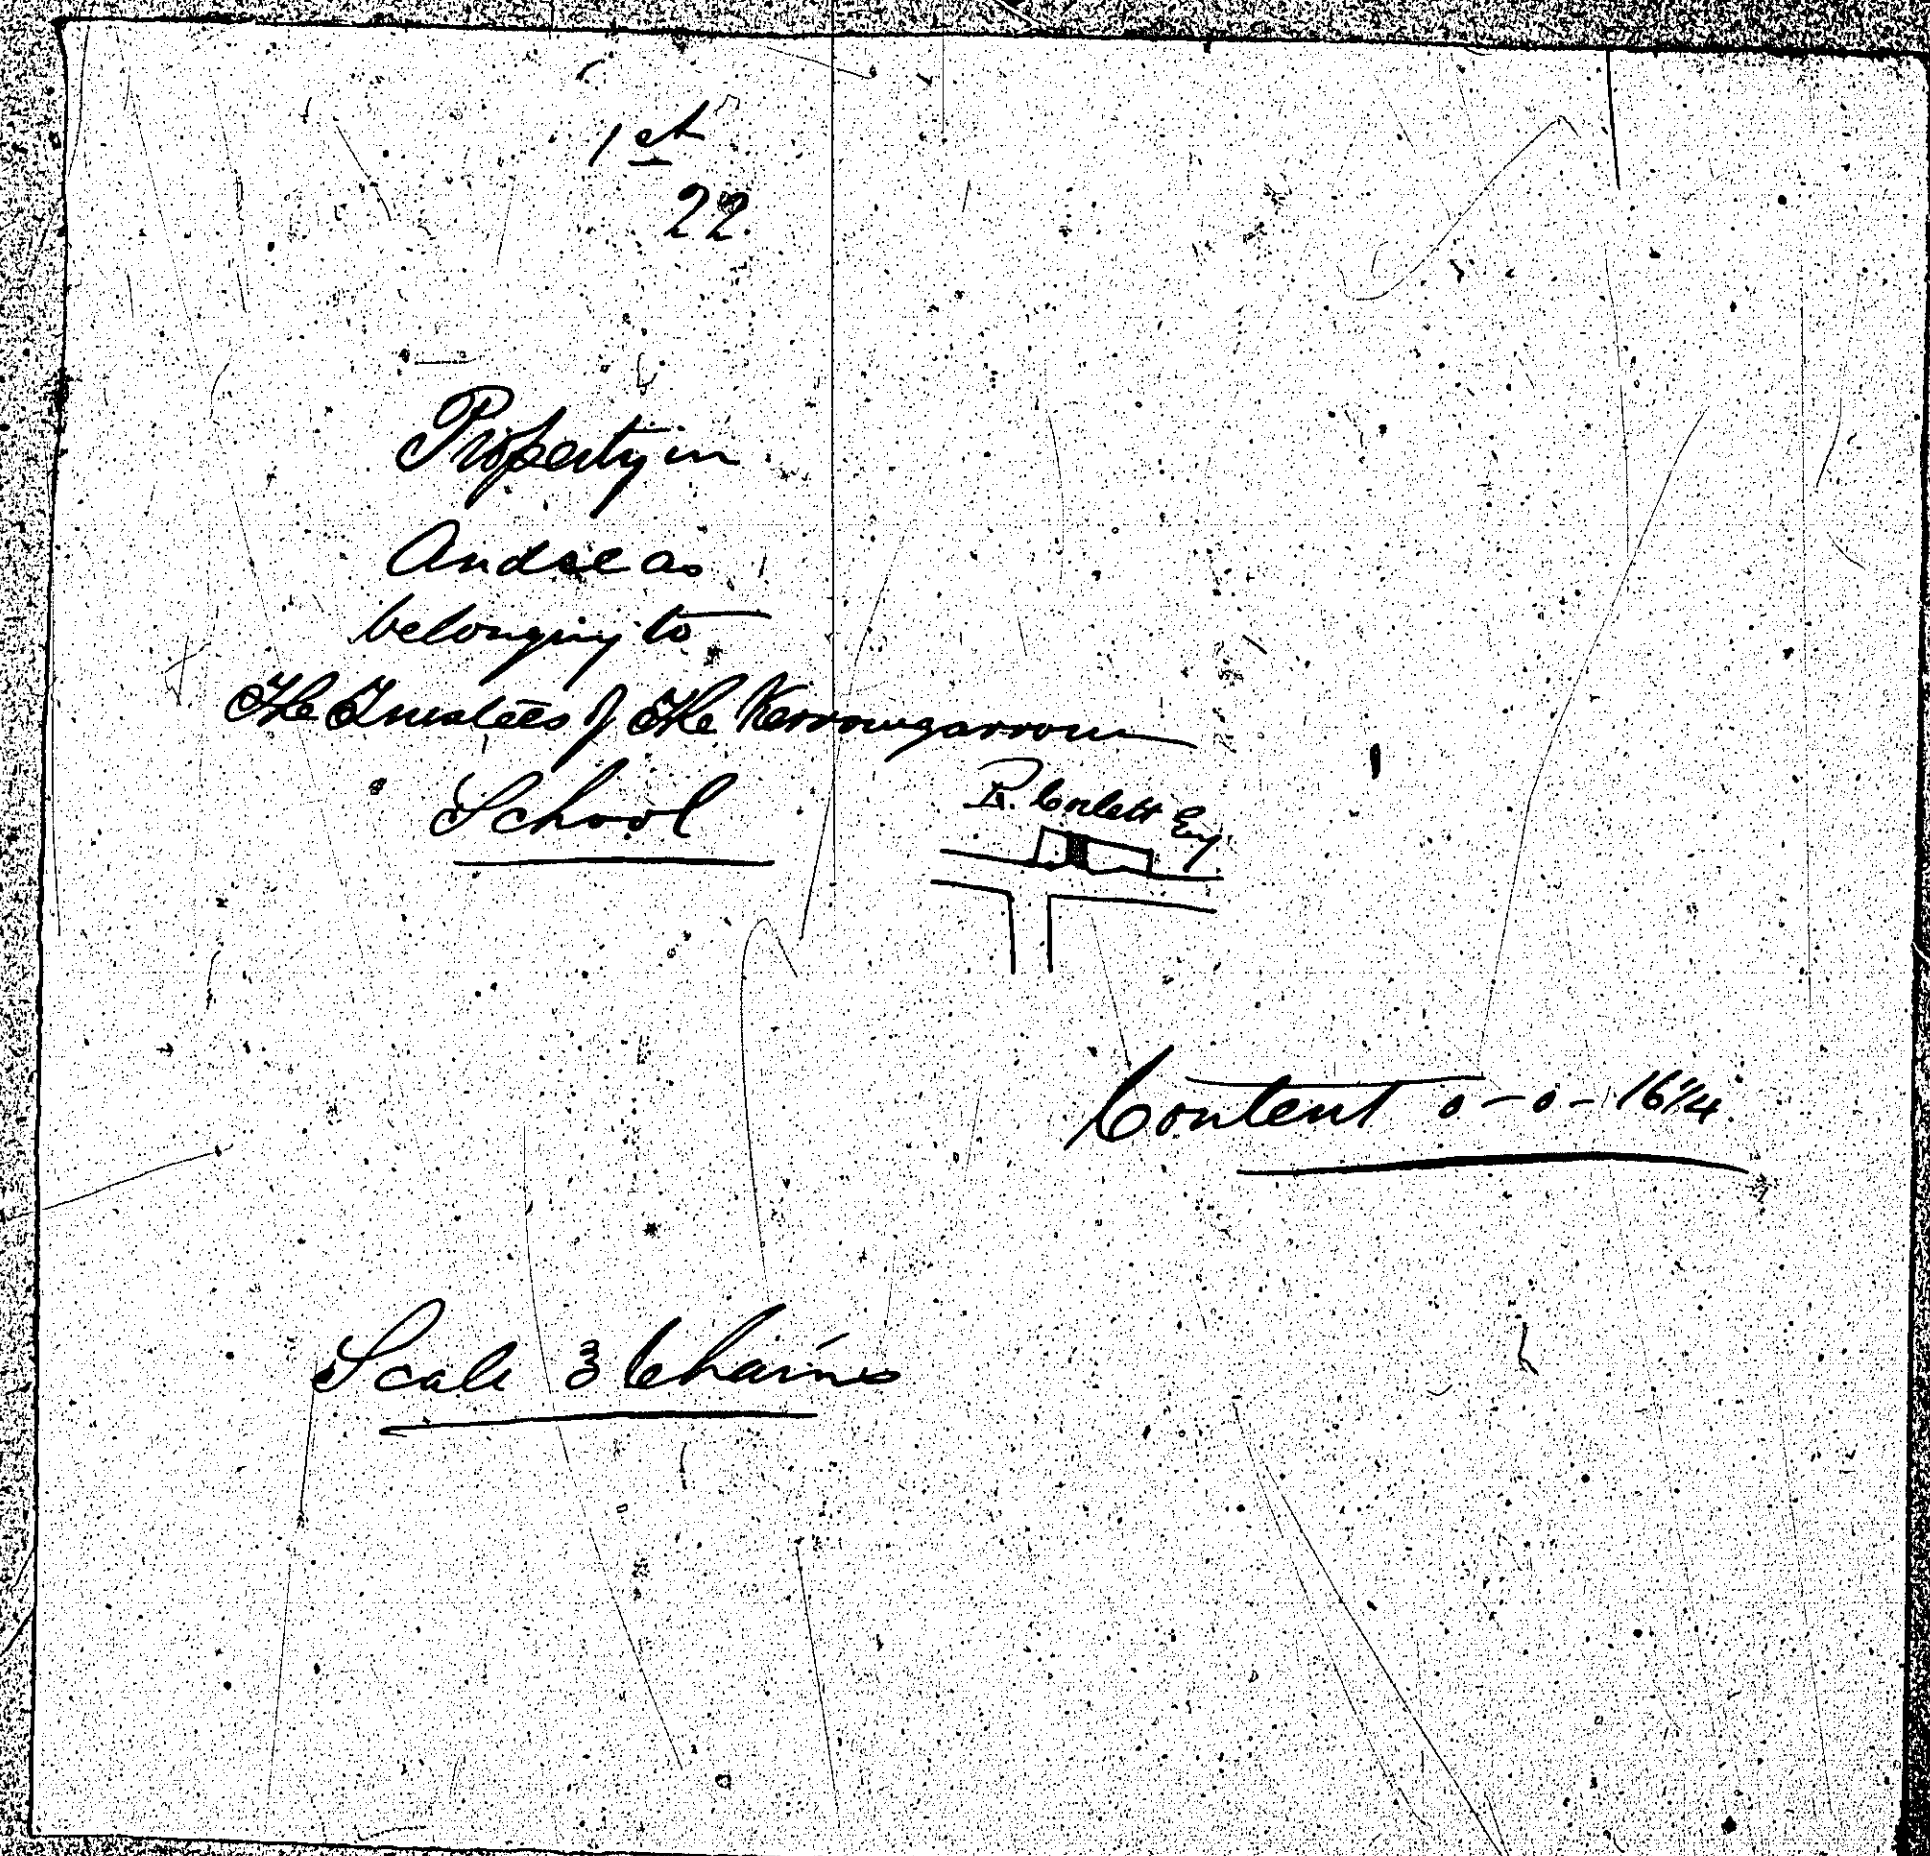 1st
22.
Property in
Andreas
belonging to
The Trustees of The Kerrowgarrow
School
R. Corlett Esq
Content 0-0-16 1/4
Scale 3 Chains